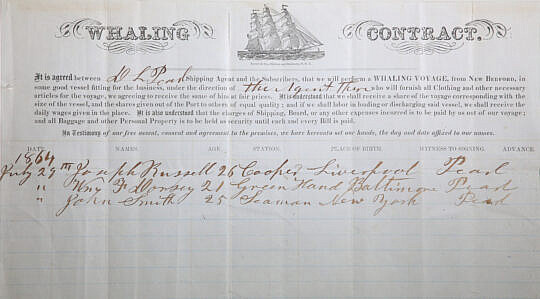 WHALING CONTRACT.
It is agreed between D L Pearl Shipping Agent and the Subscribers, that we will perform a WHALING VOYAGE, from New Bedford, in
some good vessel fitting for the business, under the direction of the Agent Thos who will furnish all Clothing and other necessary
articles for the voyage, we agreeing to receive the same of him at fair prices. It is understood that we shall receive a share of the voyage corresponding with the
size of the vessel, and the shares given out of the Port to others of equal quality; and if we shall labor in loading or discharging said vessel, we shall receive the
daily wages given in the place. It is also understood that the charges of Shipping, Board, or any other expenses incurred is to be paid by us out of our voyage;
and all Baggage and other Personal Property is to be held as security until each and every Bill is paid.
In Testimony of our free assent, consent and agreement to the premises, we have hereunto set our hands, the day and date affixed to our names.
DATE. NAMES. AGE. STATION. PLACE OF BIRTH. WITNESS TO SIGNING. ADVANCE.
1864
July 29th Joseph Russell 26 Cooper Liverpool Pearl
" Wm F Dorsey 21 Green Hand Baltimore Pearl
" John Smith 25 Seaman New York Pearl